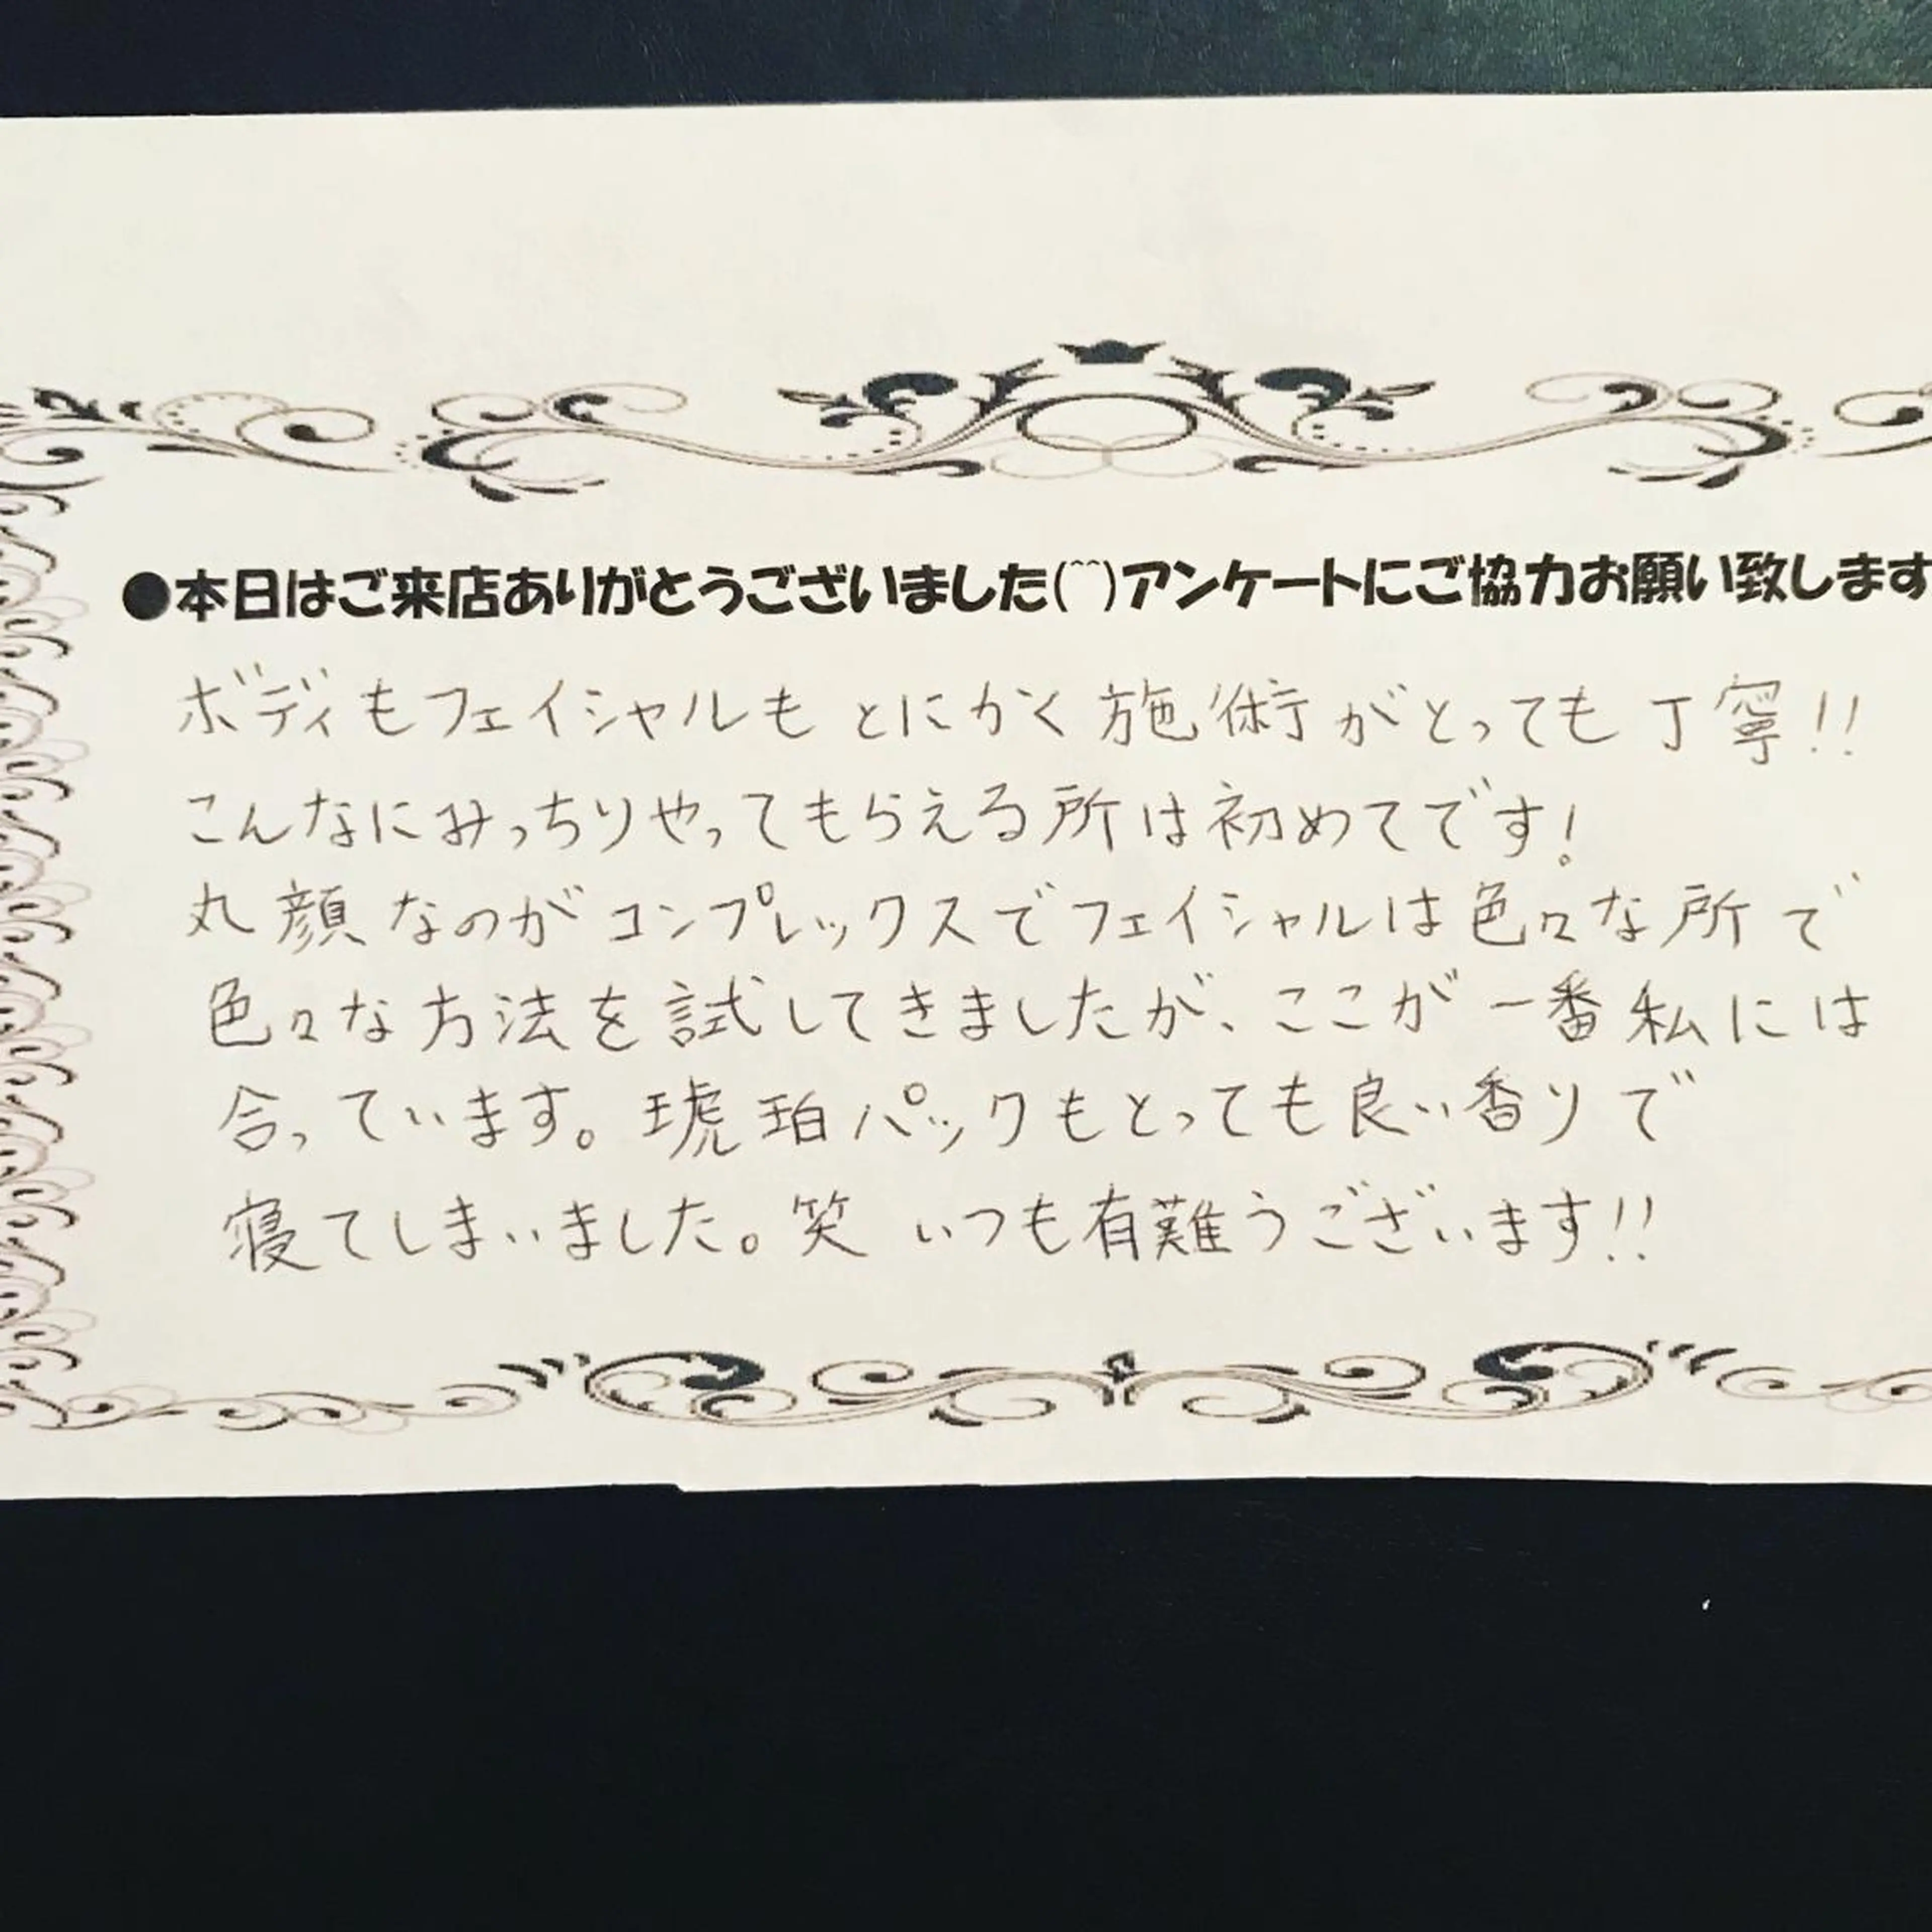 ●本日はご来店ありがとうございました(^^)アンケートにご協力お願い致します
ボディもフェイシャルも とにかく 施術 がとっても 丁寧!!
こんなにみっちりやってもらえる所は初めてです!
丸顔なのがコンプレックスでフェイシャルは色々な所で
色々な方法を試してきましたが、ここが一番私には
合っています。琥珀パックもとっても良い香りで
寝てしまいました。笑 いつも有難うございます!!